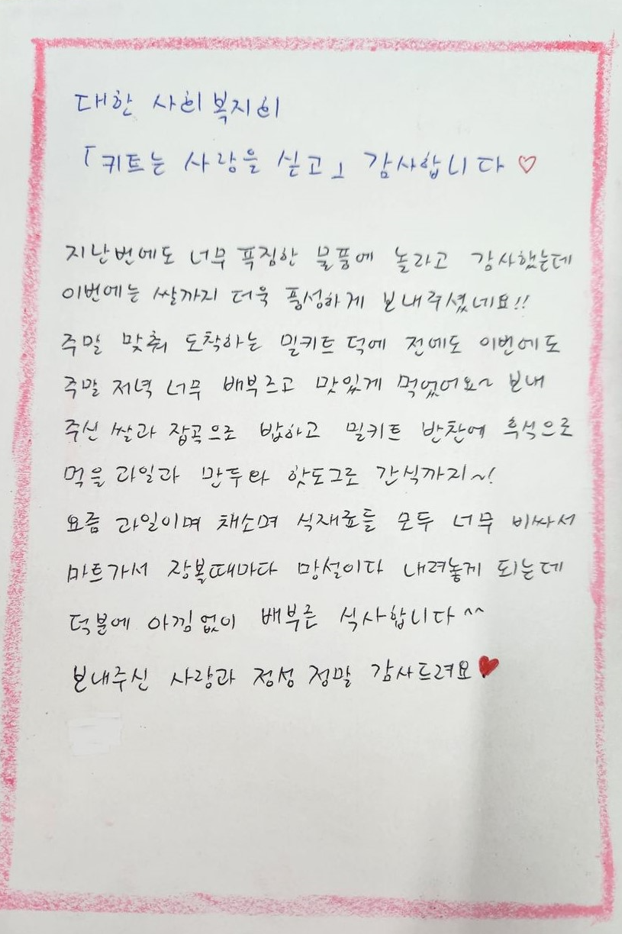 대한 사회복지회
「키트는 사랑을 싣고」 감사합니다 ♡
지난번에도 너무 푹짐한 물품에 놀라고 감사했는데
이번에는 쌀까지 더욱 풍성하게 보내주셨네요!!
주말 맞춰 도착하는 밀키트 덕에 전에도 이번에도
주말 저녁 너무 배부르고 맛있게 먹었어요~ 보내
주신 쌀과 잡곡으로 밥하고 밀키트 반찬에 후식으로
먹을 과일과 만두와 핫도그로 간식까지~!
요즘 과일이며 채소며 식재료들 모두 너무 비싸서
마트가서 장볼때마다 망설이다 내려놓게 되는데
덕분에 아낌없이 배부른 식사합니다^^
보내주신 사랑과 정성 정말 감사드려요♥